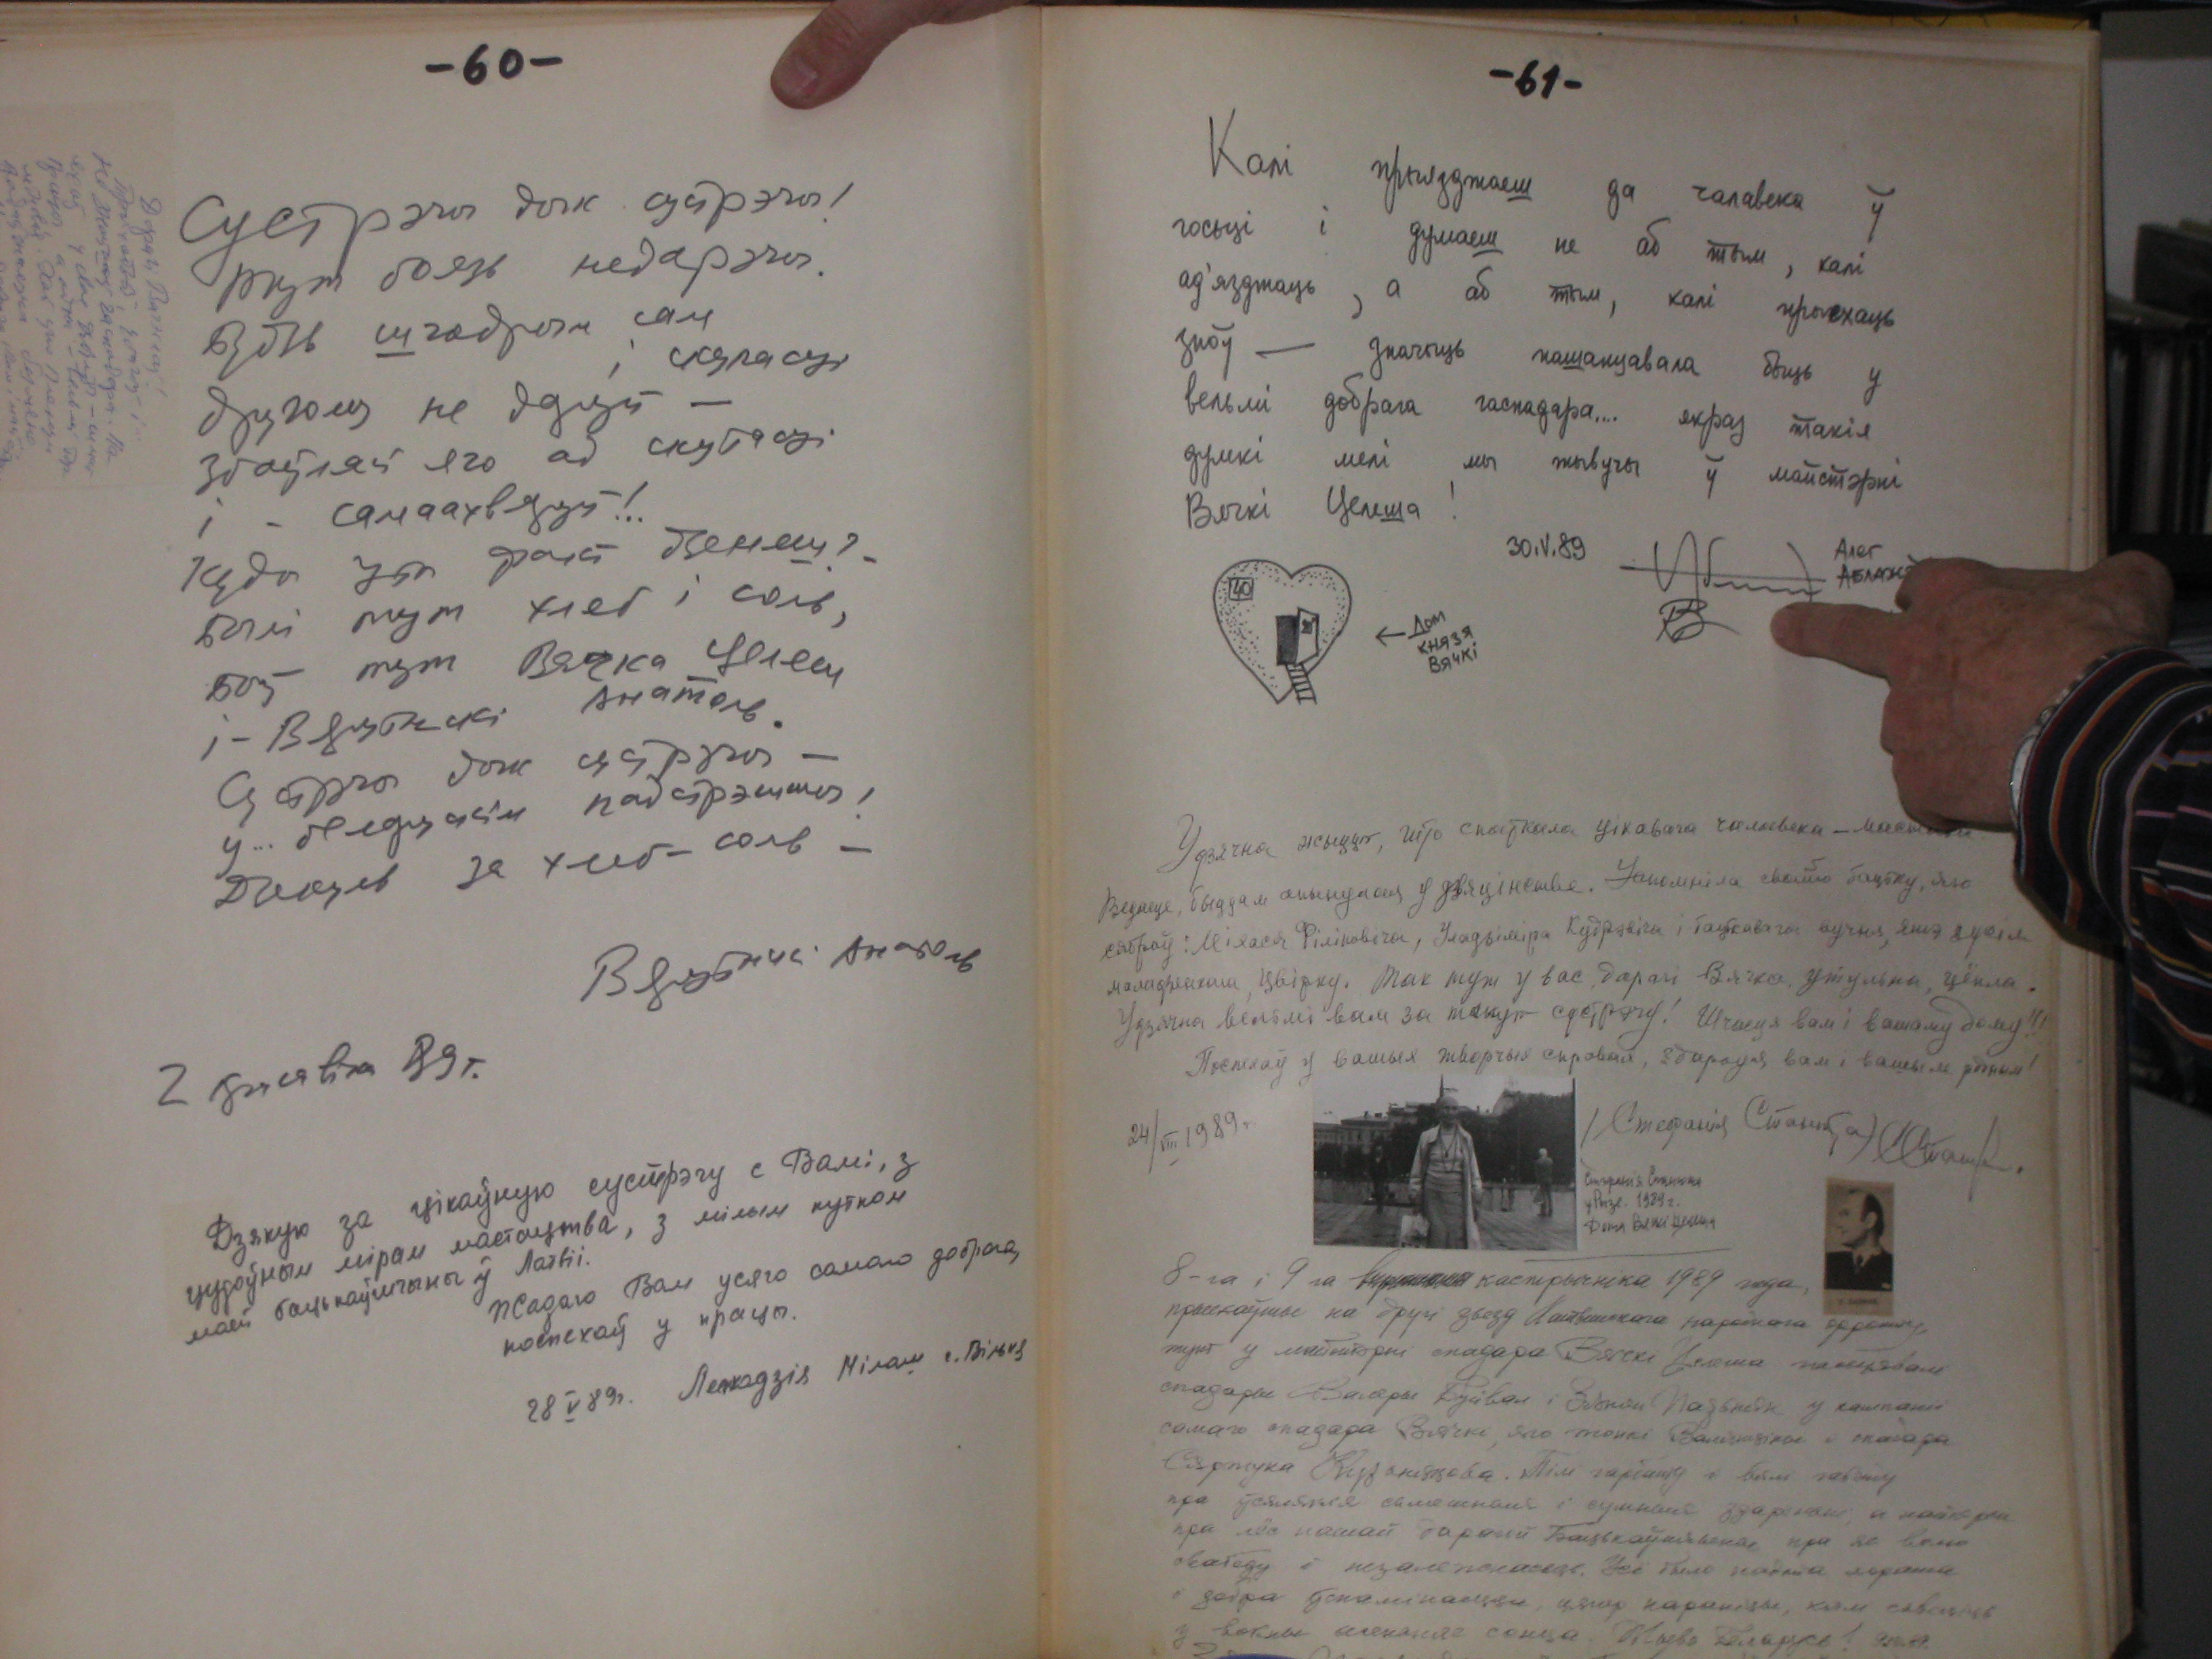 -60-
Сустрэчы дык сустрэчы!
тут боязь недарэчы.
Будзь шчодрым сам
і скупасці
другому не даруй —
збаўляй яго ад скупасці
і - самаахвяруй!..
Куды ўжо факт дзенеш? -
Былі тут хлеб і соль,
Быў тут Вячка Целеш
і - Вярцінскі Анатоль.
Сустрэчы дык сустрэчы —
у... беларускім падстрэшшы!
Дзякуй за хлеб-соль —
Вярцінскі Анатоль
2 красавіка 89 г.
Дзякую за цікаўную сустрэчу с Вамі, з
цудоўным мірам мастацтва, з мілым кутком
маей бацькаўшчыны ў Латвіі.
Жадаю Вам усяго самаго добрага,
поспехаў у працы.
28 V 89г. Леакадзія Мілаш г. Вільня
-61-
Калі прыязджаеш да чалавека ў
госьці і думаеш не аб тым, калі
ад'язджаць, а аб тым, калі прыехаць
зноў — значыць пашанцавала быць у
вельмі добрага гаспадара... якраз такія
думкі мелі мы жывучы ў майстэрні
Вячкі Целеша!
30.V.89
Алег
40
← Дом
князя
Вячкі
Удзячна жыццю, што спаткала цікавага чалавека —
быццам апынулася у дзяцінстве. Успомніла свайго бацьку, яго
сяброў: Міхася Філіповіча, Уладзіміра Кудрэвіча і бацькавага вучня,
маладзенькага Цвірку. Так тут у вас, дарагі Вячка, утульна, цёпла.
Удзячна вельмі вам за такую сустрэчу! Шчасця вам і вашаму дому!!!
Поспехаў у вашых творчых справах, здароўя вам і вашым родным!
24/VIII 1989г.
/Стефанія Станюта/
Стефанія Станюта
у Рызе. 1989 г.
Фота Вячкі Целеша
8-га і 9 га кастрычніка 1989 года,
прыехаўшы на другі зьезд Латвійскага народнага фронту,
тут у майстэрні спадара Вячкі Целеша
спадары Валеры Буйвал і Зянон Пазьняк у кампаніі
самаго спадара Вячкі, яго жонкі і спадара
Сяржука Кузняцова. Пілі гарбату і вялі гаворку
пра ўсялякія і сумныя здарэньні, а
пра лёс нашай дарагой Бацькаўшчыны, пра яе волю
свабоду і незалежнасьць. Усё было
і добра
у вокны сонца. Жыве Беларусь!